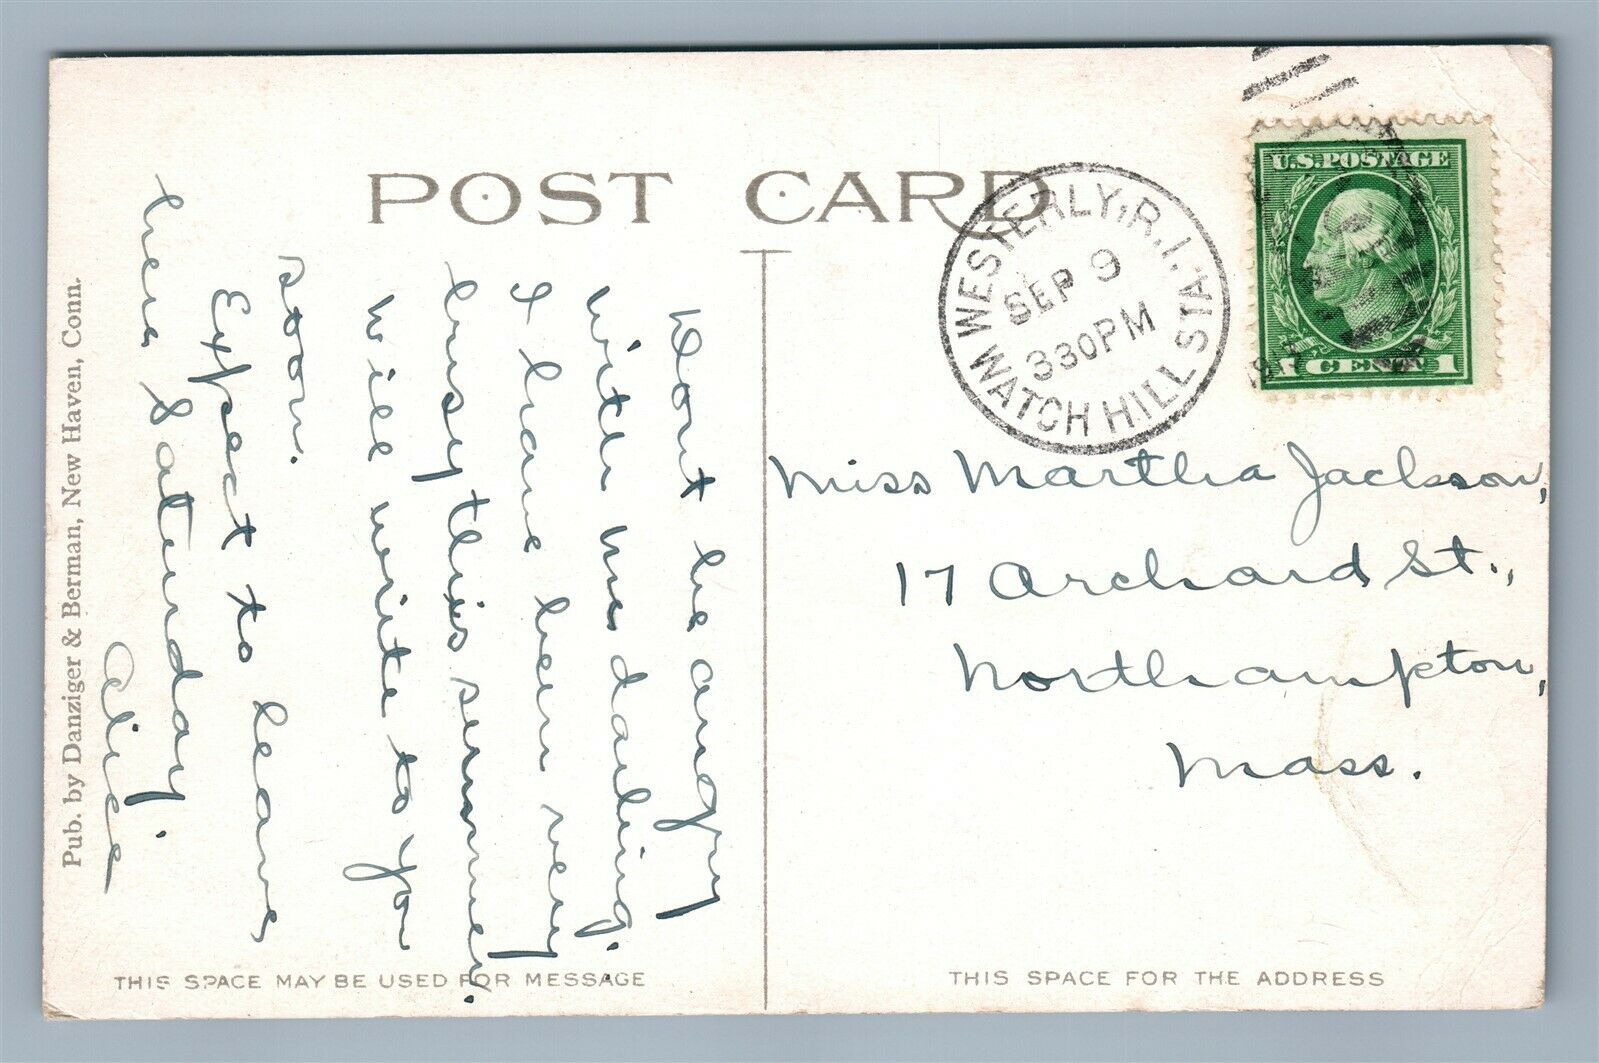 POST CARD
WESTERLY, R.I.
SEP 9
330PM
WATCH HILL STA.
U.S. POSTAGE
1 CENT 1
Dont be angry
with me daling.
I have been very
busy this summer.
Will write to you
soon.
Expect to leave
here Saturday.
Alice
Miss Martha Jackson,
17 Orchard St.,
Northampton,
Mass.
Pub. by Danziger & Berman, New Haven, Conn.
THIS SPACE MAY BE USED FOR MESSAGE
THIS SPACE FOR THE ADDRESS